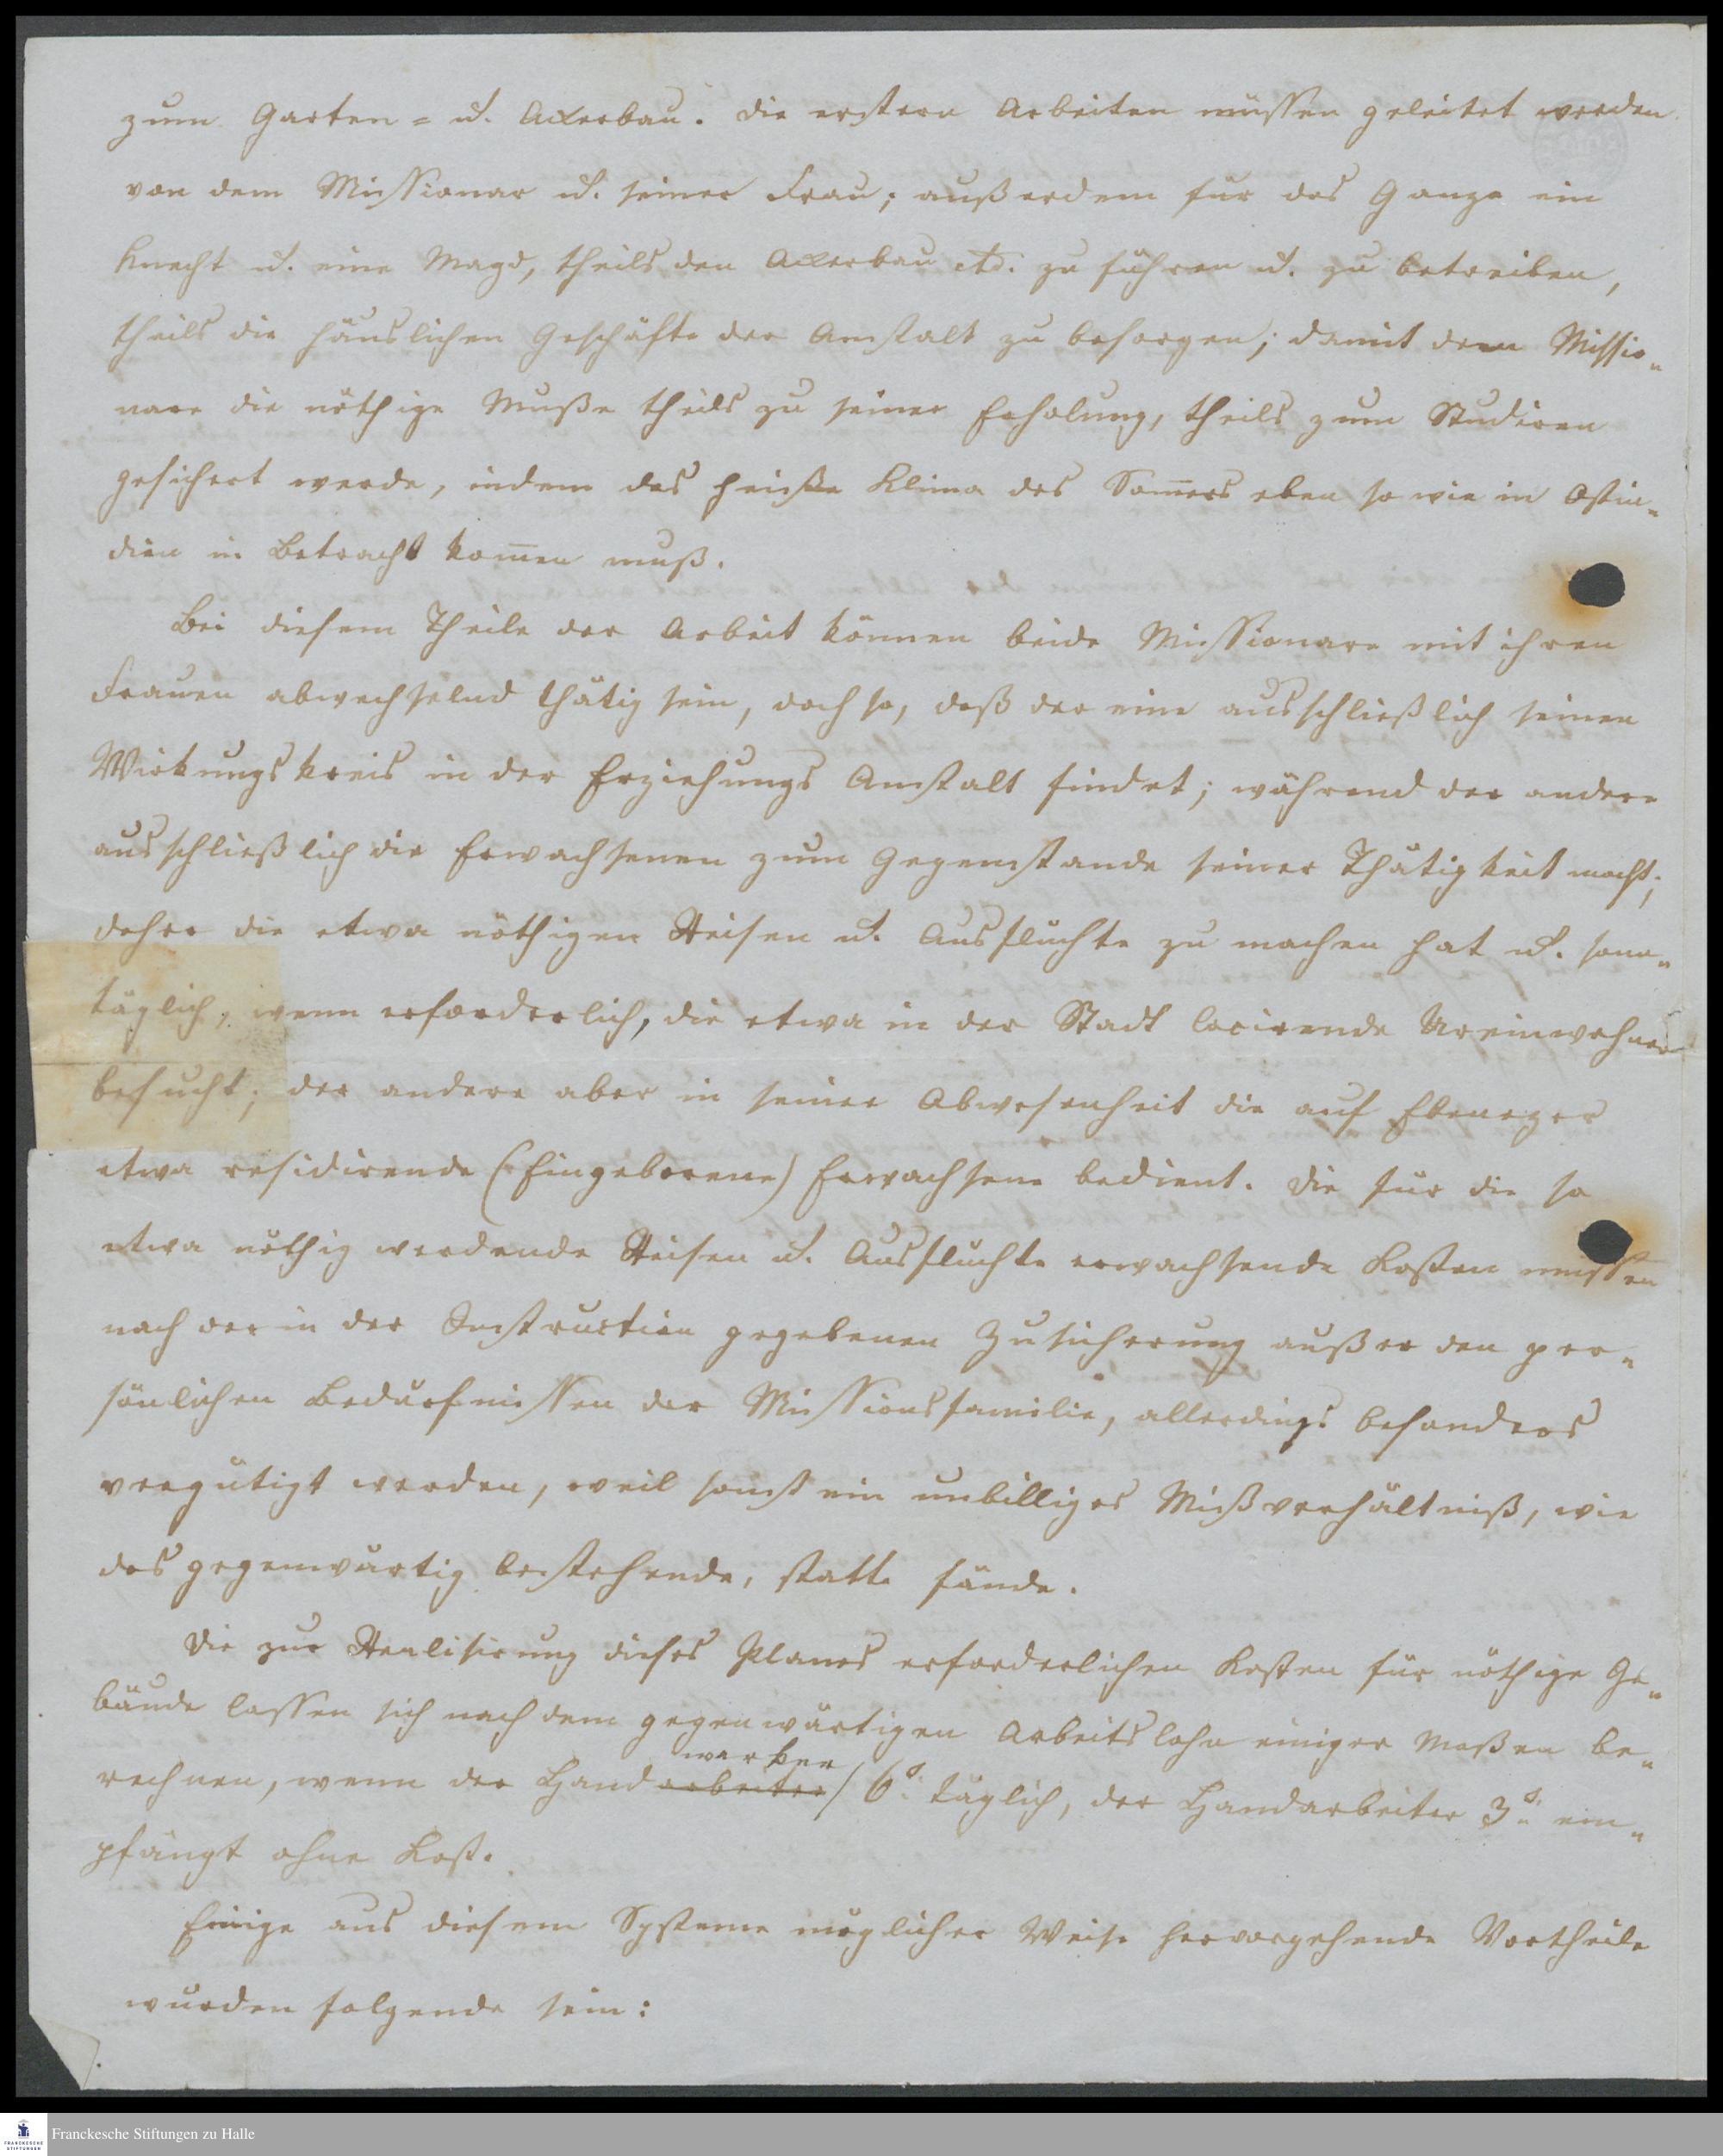 zum Garten= u. Ackerbau. Die erstern Arbeiten müssen geleitet werden
von dem Missionar u. seiner Frau; außerdem für das Ganze ein
Knecht u. eine Magd, theils den Ackerbau etc. zu führen u. zu betreiben,
theils die häuslichen Geschäfte der Anstalt zu besorgen; damit dem Missio„
nare die nöthige Muße theils zu seiner Erholung, theils zum Studiren
gesichert werde, indem das heiße Klima des Som̄ers eben so wie in Ostin„
dien in Betracht kom̄en muß.
Bei diesem Theile der Arbeit können beide Missionare mit ihren
Frauen abwechselnd thätig sein, doch so, daß der eine ausschließlich seinen
Wirkungskreis in der Erziehungs Anstalt findet; während der andere
ausschließlich die Erwachsenen zum Gegenstande seiner Thätigkeit macht;
daher die etwa nöthigen Reisen u. Ausfluchte zu machen hat u. sonn„
täglich, wenn erforderlich, die etwa in der Stadt locirende Ureinwohner
besucht; der andere aber in seiner Abwesenheit die auf Ebenezer
etwa residirende (Eingeborene) Erwachsene bedient. Die für die so
etwa nöthig werdende Reisen u. Ausfluchte erwachsende Kosten müssen
nach der in der Instruction gegebenen Zusicherung außer den per„
sönlichen Bedürfnissen der Missionsfamilie, allerdings besonders
vergütigt werden, weil sonst ein unbilliges Mißverhältniß, wie
das gegenwärtig bestehende, statte fände.
Die zur Realisirung dieses Planes erforderlichen Kosten für nöthige Ge„
bäude lassen sich nach dem gegenwärtigen Arbeitslohn einiger Maßen be„
werker
rechnen, wenn der Handarbeiter/ 6s. täglich, der Handarbeiter 3s. em„
pfängt ohne Kost.
Einige aus diesem Systeme möglicher Weise hervorgehende Vortheile
würden folgende sein:
Franckesche Stiftungen zu Halle
FRANCKESCHE
STIFTUNGEN